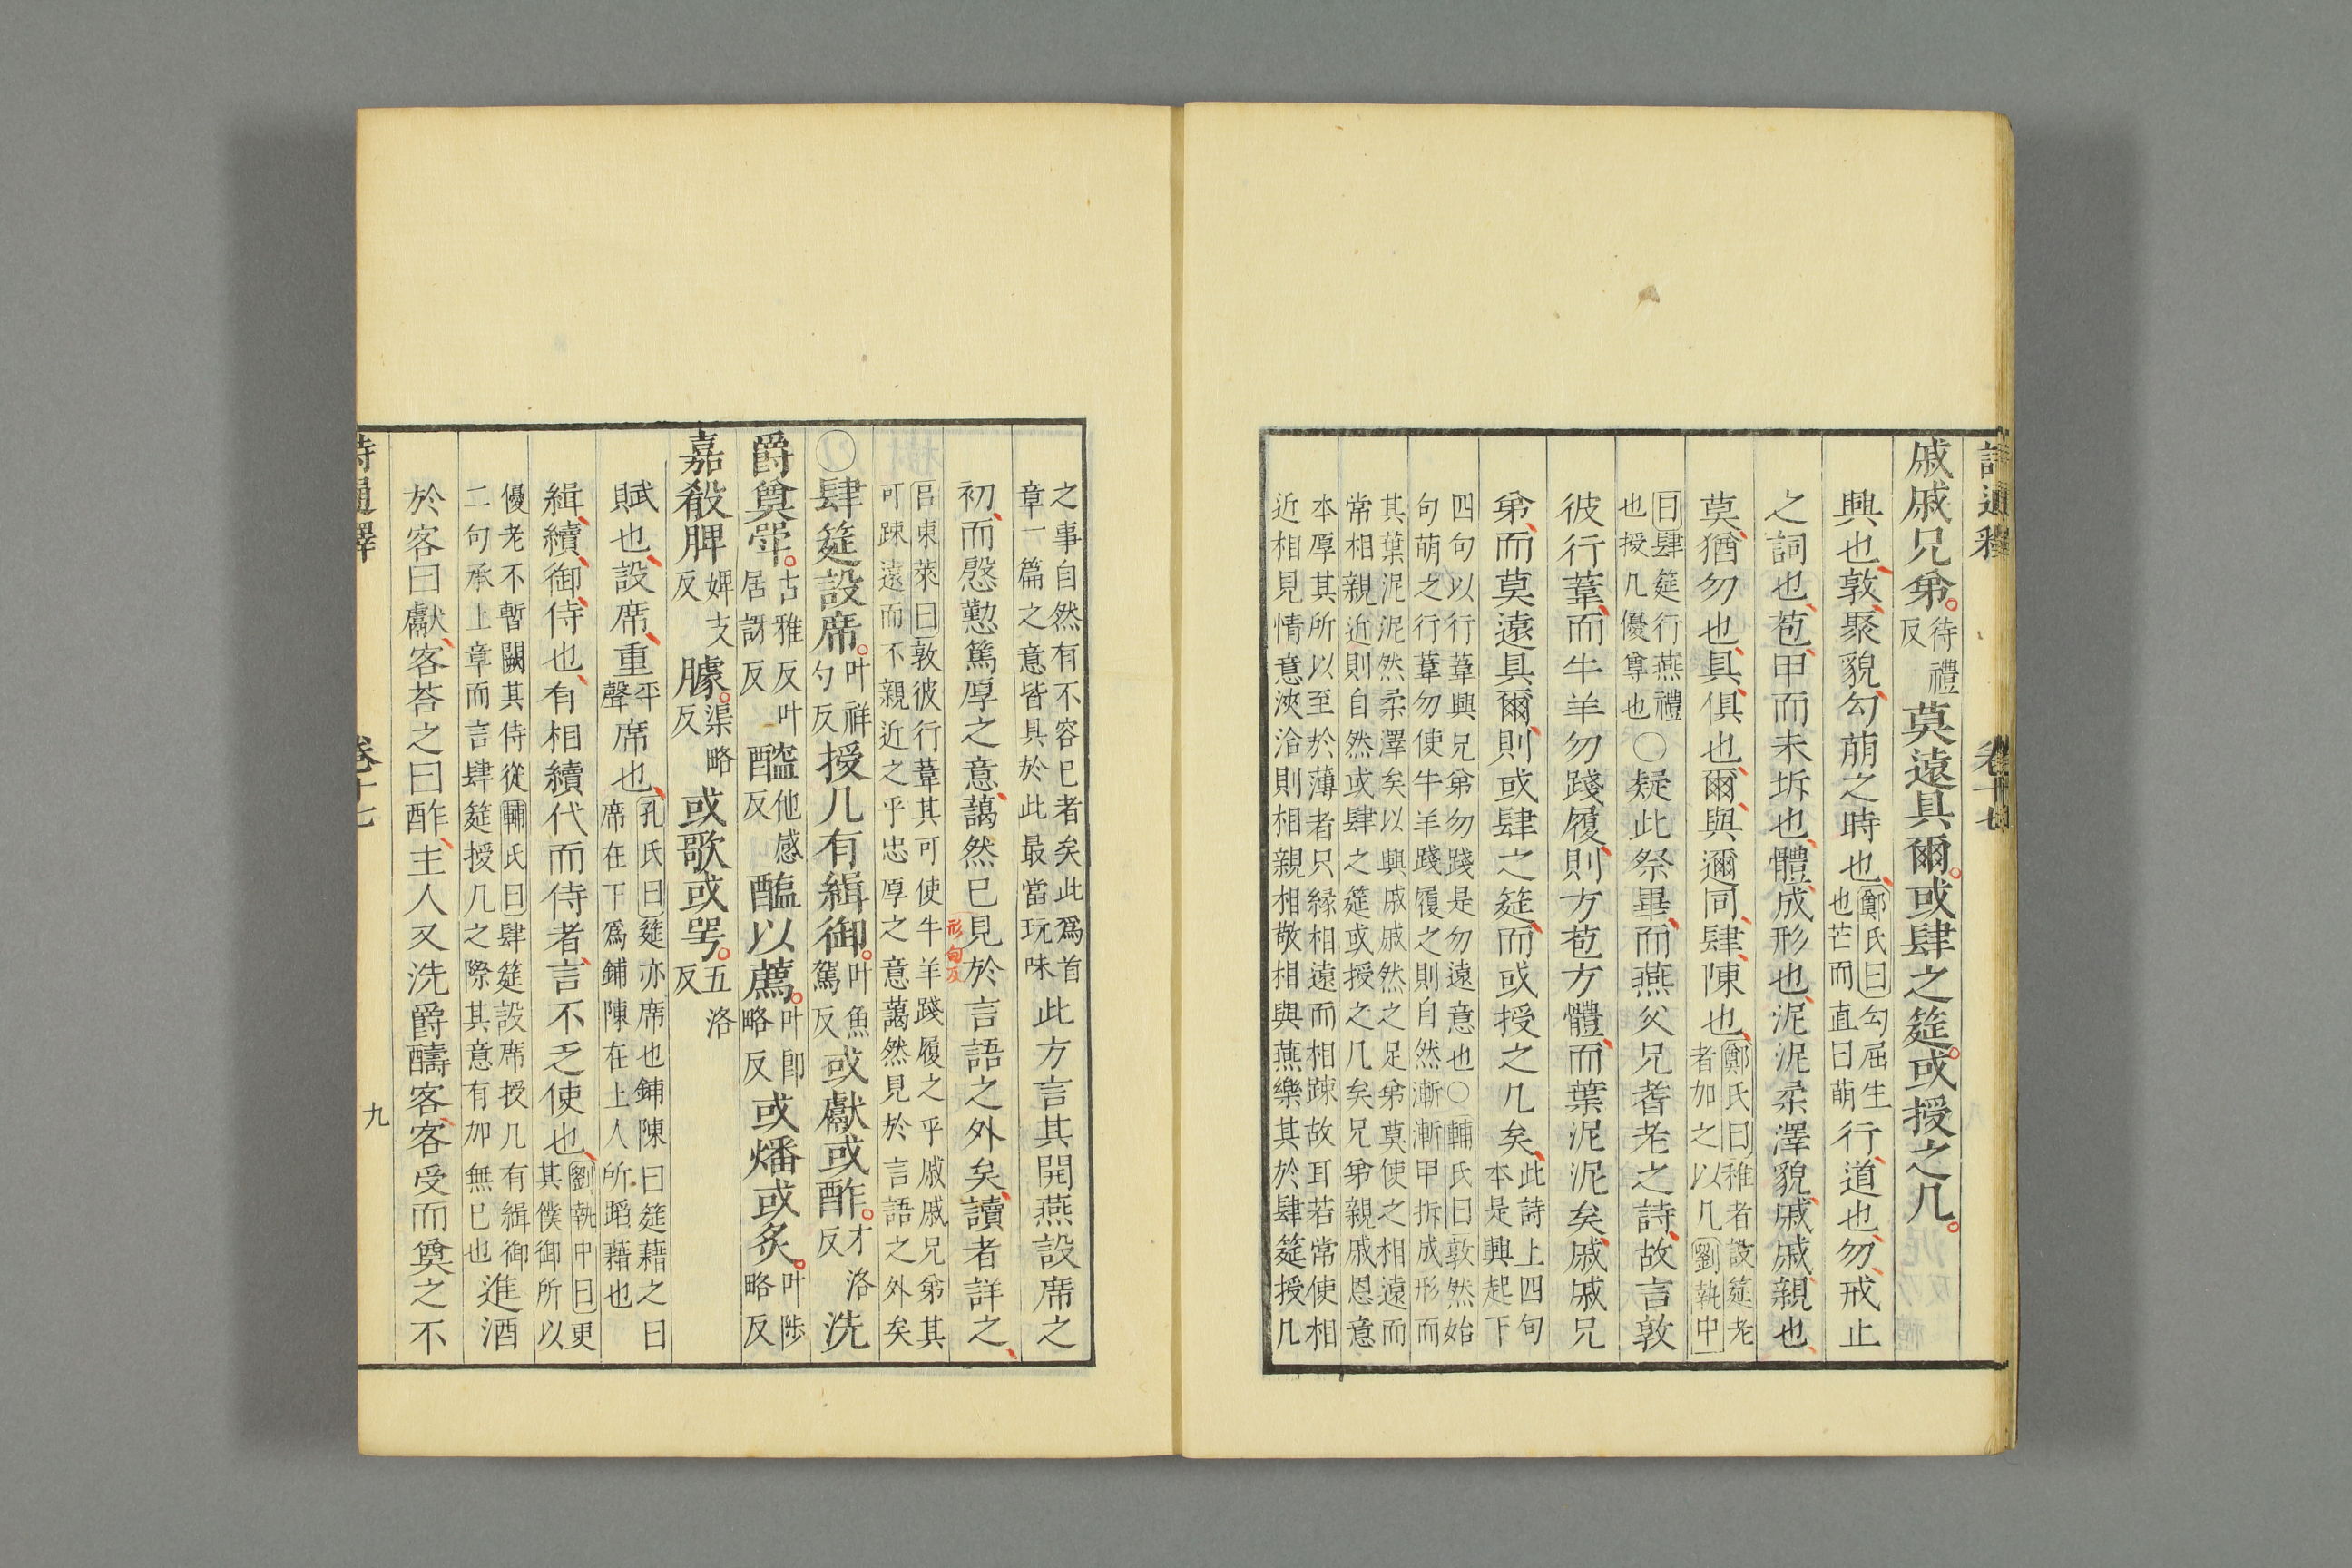 詩通釋 卷十七
戚戚兄弟待禮反莫遠具爾或肆之筵或授之几
興也敦聚貌勾萌之時也鄭氏曰勾屈生也芒而直曰萌行道也勿戒止
之詞也苞甲而未坼也體成形也泥泥柔澤貌戚戚親也
莫猶勿也具俱也爾與邇同肆陳也鄭氏曰稚者設筵老者加之以几劉執中
曰肆筵行燕禮也授几優尊也○疑此祭畢而燕父兄耆老之詩故言敦
彼行葦而牛羊勿踐履則方苞方體而葉泥泥矣戚戚兄
弟而莫遠具爾則或肆之筵而或授之几矣此詩上四句本是興起下
四句以行葦興兄弟勿踐是勿遠意也○輔氏曰敦然始
句萌之行葦勿使牛羊踐履之則自然漸漸甲拆成形而
其葉泥泥然柔澤矣以興戚戚然之足弟莫使之相遠而
常相親近則自然或肆之筵或授之几矣兄弟親戚恩意
本厚其所以至於薄者只緣相遠而相踈故耳若常使相
近相見情意浹洽則相親相敬相與燕樂其於肆筵授几
之事自然有不容已者矣此爲首
章一篇之意皆具於此最當玩味此方言其開燕設席之
初而慇懃篤厚之意藹然已見於言語之外矣讀者詳之
形甸反
呂東萊曰敦彼行葦其可使牛羊踐履之乎戚戚兄弟其
可踈遠而不親近之乎忠厚之意藹然見於言語之外矣
○肆筵設席叶祥勺反授几有緝御叶魚駕反或獻或酢才洛反洗
爵奠斝古雅反叶居訝反醓他感反醢以薦叶即略反或燔或炙叶陟略反
嘉殽脾婢支反臄渠略反或歌或咢五洛反
賦也設席重平聲席也孔氏曰筵亦席也鋪陳曰筵藉之曰席在下爲鋪陳在上人所蹈藉也
緝續御侍也有相續代而侍者言不乏使也劉執中曰更其僕御所以
優老不暫闕其侍從輔氏曰肆筵設席授几有緝御
二句承上章而言肆筵授几之際其意有加無已也進酒
於客曰獻客荅之曰酢主人又洗爵醻客客受而奠之不
詩通釋 卷十七 九